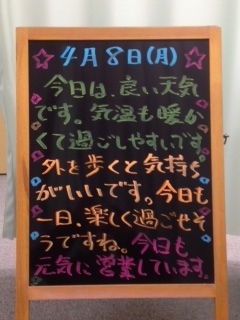 4月8日(月)
今日は、良い天気
です。気温も暖か
くて過ごしやすいです。
外を歩くと気持ち
がいいです。今日も
一日、楽しく過ごせそ
うですね。今日も
元気に営業しています。